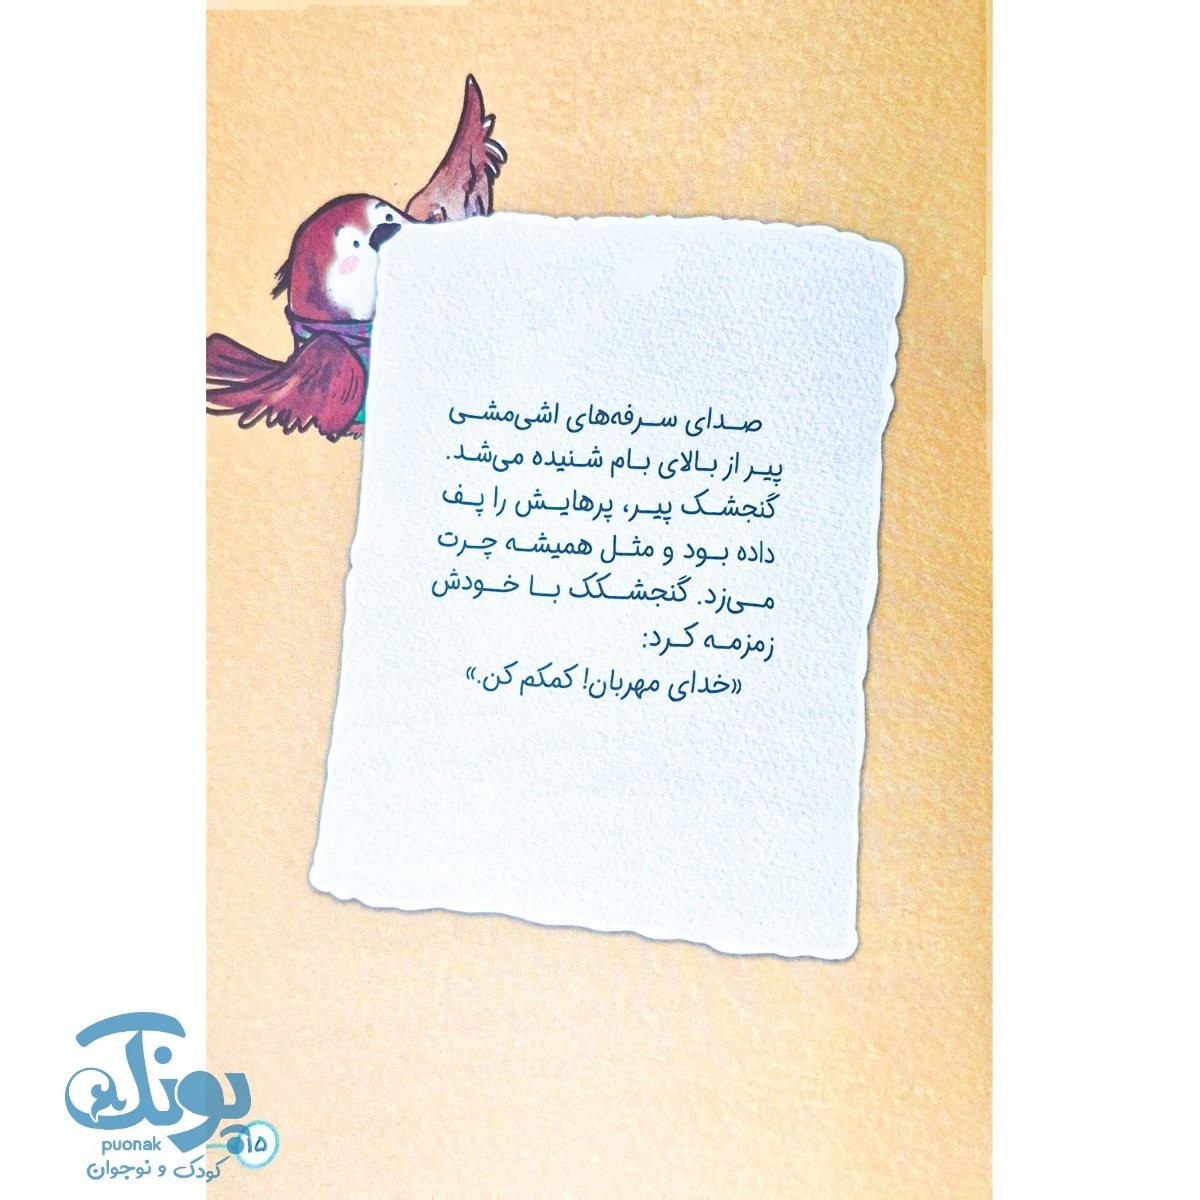 صدای سرفه‌های اشی‌مشی
پیر از بالای بام شنیده می‌شد.
گنجشک پیر، پرهایش را پف
داده بود و مثل همیشه چرت
می‌زد. گنجشکک با خودش
زمزمه کرد:
«خدای مهربان! کمکم کن.»
پونک
puonak
۱۵
کودک و نوجوان